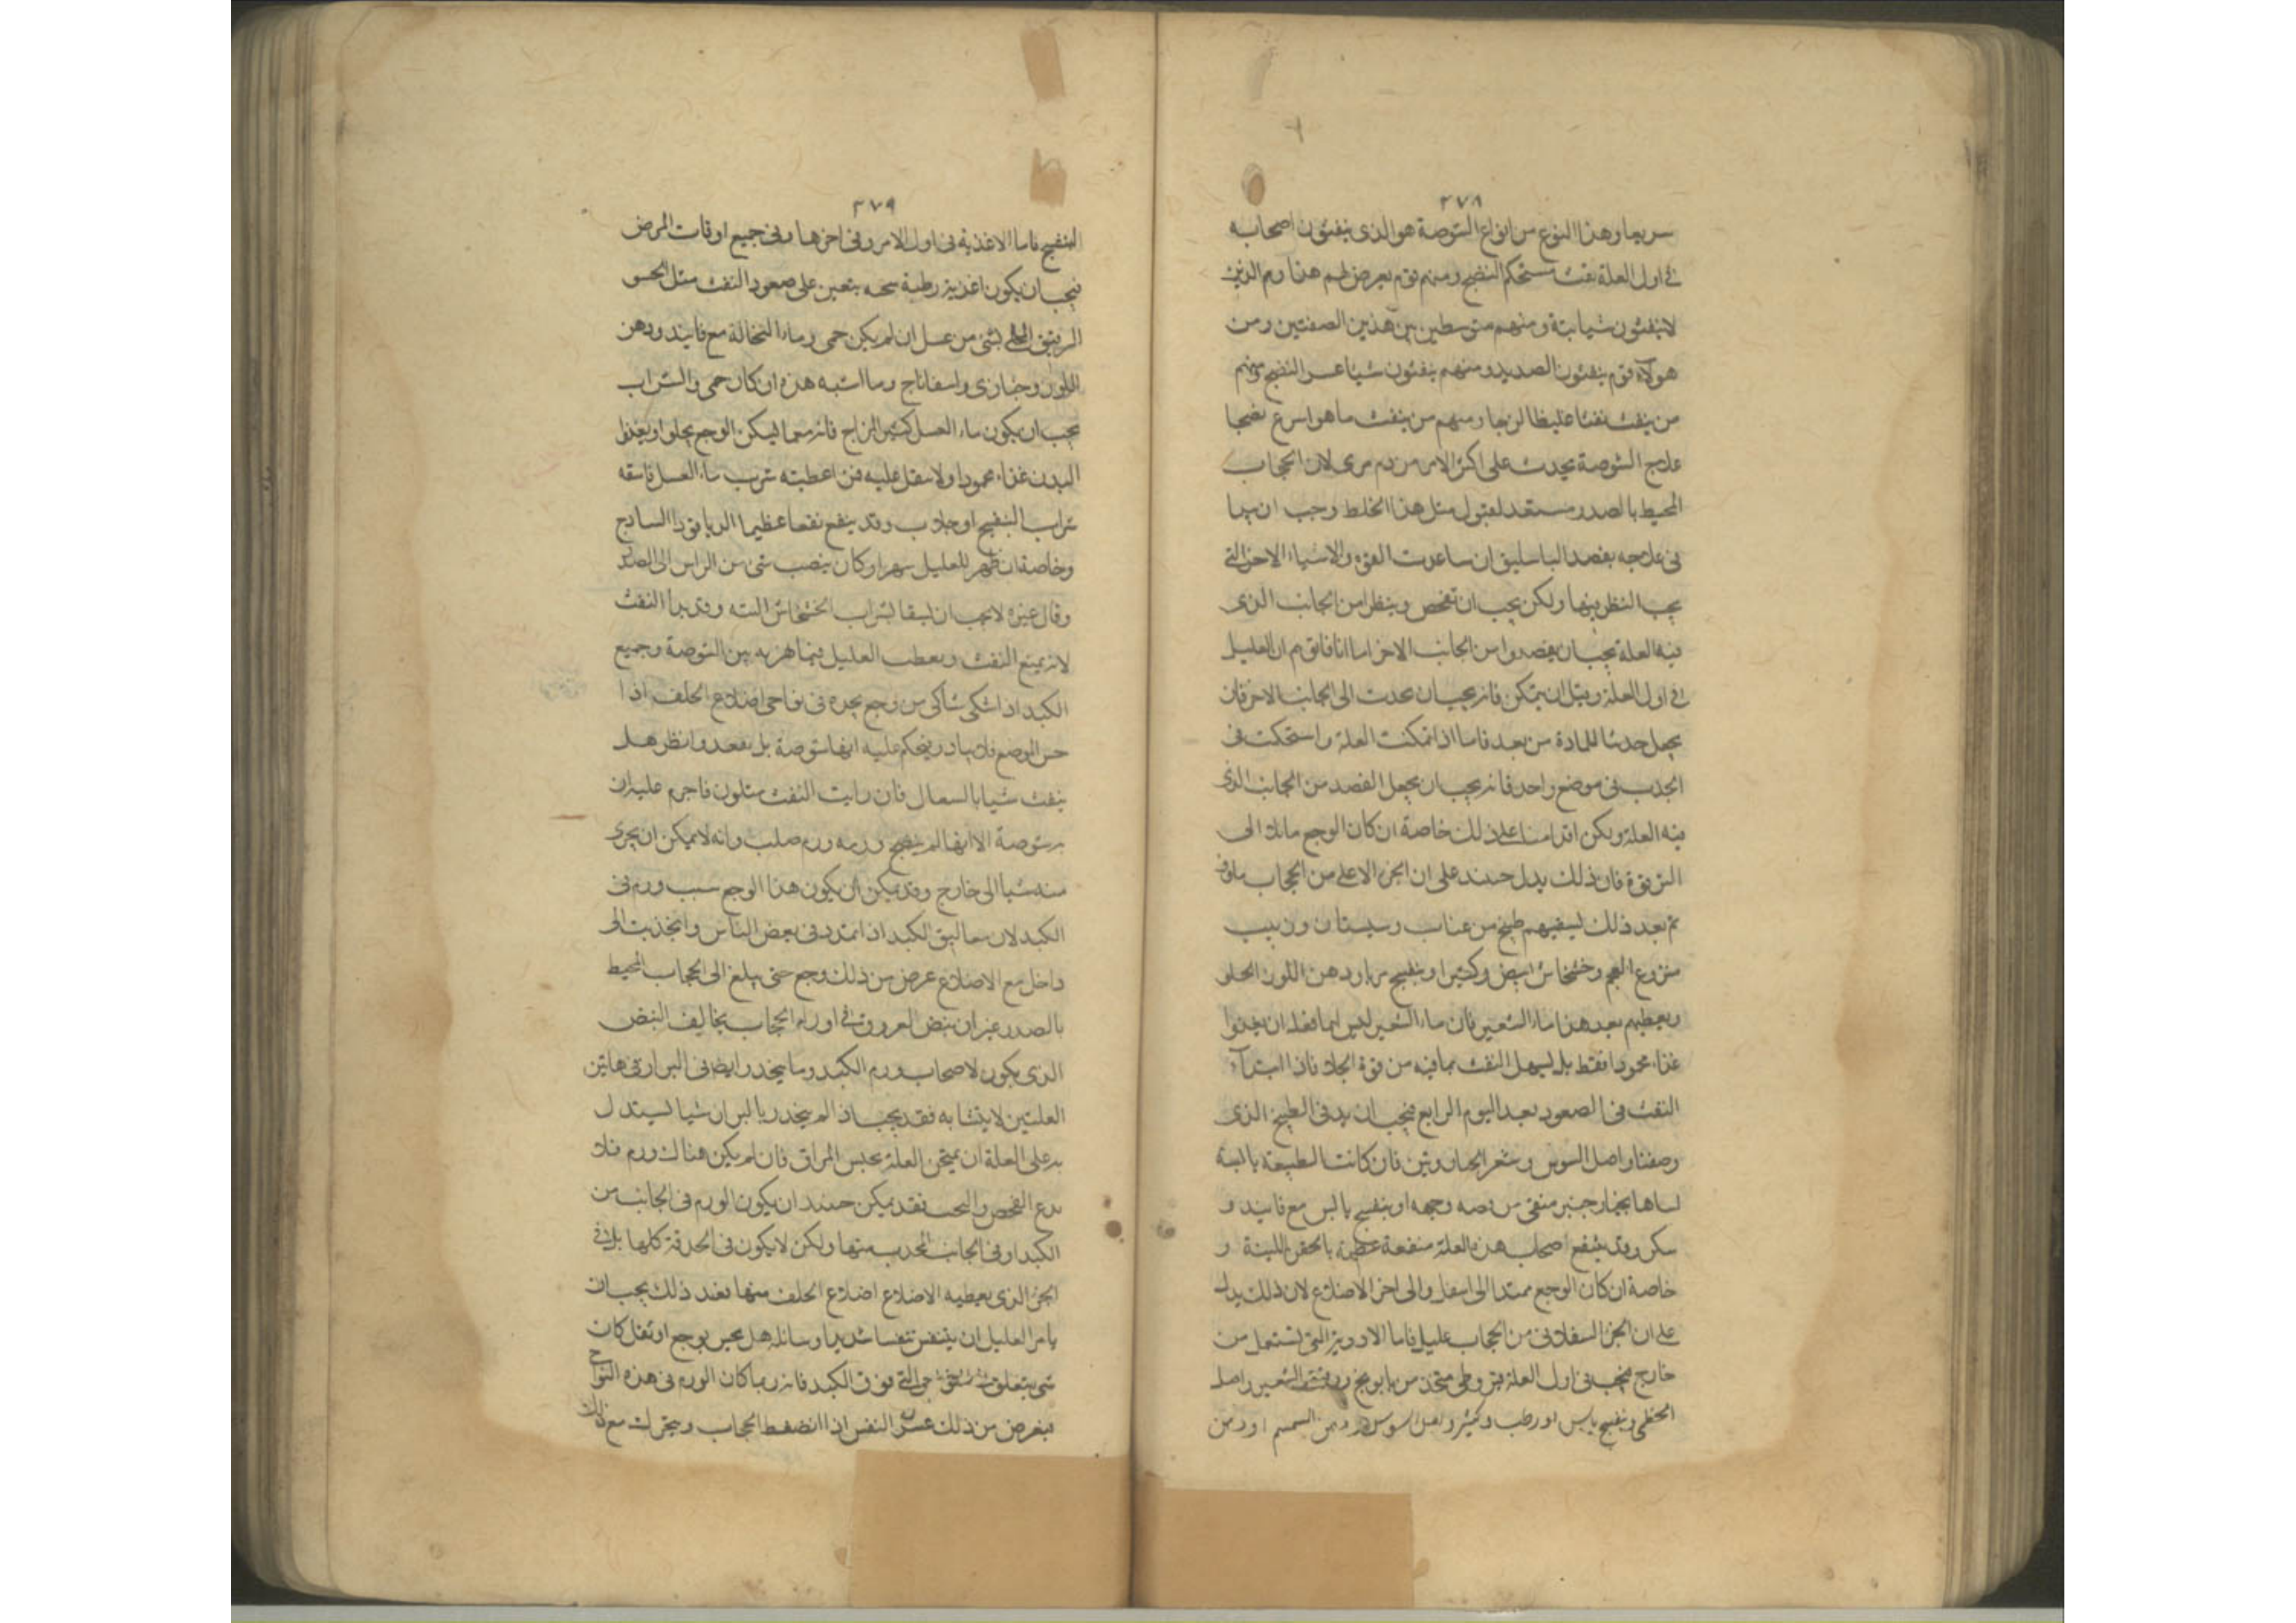 ٣٧٨
سريعا وهذا النوع من انواع الشوصة هو الذى ينفثون اصحابه
فى اول العلة نفث مستحكم النضج ومنهم قوم يعرض لهم هذا وهم الذين
لا ينفثون شيا بتة ومنهم متوسطين بين هذين الصفتين ومن
هولآء قوم ينفثون الصديد ومنهم ينفثون شيئا عسر النضج ومنهم
من ينفث نفثا غليظا لزجا ومنهم من ينفث ما هو اسرع نضجا
علاج الشوصة يحدث على اكثر الامر من دم مرى لان الحجاب
المحيط بالصدر مستعد لقبول مثل هذا الخلط وجب ان يبدا
فى علاجه بفصد الباسليق ان ساعدت القوه والاشياء الاخر التى
يجب النظر فيها ولكن يجب ان تفحص وينظر امن الجانب الذى
فيه العلة يجب ان يفصدوا من الجانب الاخر اما انا فاقوم ان العليل
فى اول العلة وقبل ان يتمكن فانه يجب ان يحدث الى الجانب الاخر فان
يجعل جدثا للمادة من بعد فاما اذا تمكنت العلة واستحكت فى
الجذب فى موضع واحد فانه يجب ان يجعل الفصد من الجانب الذى
فيه العلة ويكن اقدامنا على ذلك خاصة ان كان الوجع مائلا الى
الترقوة فان ذلك يدل حسند على ان الجزء الاعلى من الحجاب ماوف
ثم بعد ذلك ليسقيهم طبيخ من عناب وسبستان وزبيب
منزوع العجم وخشخاش ابيض وكثيرا وبنفسج مربا ودهن اللوز الحلو
ويعطيهم بعد هذا ماء الشعير فان ماء الشعير ليس انما فعله ان يغذوا
غذاء محمودا فقط بل ليسهل النفث بما فيه من قوة الجلاء فاذا ابتدآء
النفث فى الصعود بعد اليوم الرابع فيجب ان يدنى الطبيخ الذى
وصفنا واصل السوس وشعر الجبار وتين فان كانت الطبيعة يابسة
لساها بخيارجنبر منقى من وبنفسج يابس مع فانيد و
سكر وقد ينتفع اصحاب هذه العلة منفعة عظيمة بالحقن اللينة و
خاصة ان كان الوجع ممتدا الى اسفل والى اخر الاضلاع لان ذلك يدل
على ان الجزء السفلانى من الحجاب عليل فاما الادوية التى تستعمل من
خارج فيجب فى اول العلة قيروطى متخذ من بابونج ودقيق الشعير واصل
الخطمى وبنفسج يابس او رطب وكثيرا واصل السوس ودهن السمسم او دهن
٣٧٩
البنفسج فاما الاغذية فى اول الامر وفى اخرها وفى جميع اوقات المرض
فيجب ان يكون اغذية رطبة يعين على صعود النفث مثل الحسو
الرقيق المحلى بشئ من عسل ان لم يكن حمى وماء النخالة مع فانيد ودهن
اللوز وخبازى واسفاناج وما اشبه هذه ان كان حمى والشراب
يجب ان يكون ماء العسل كثير المزاج فانه مما ليسكن الوجع يجلو او يغذوا
البدن غذاء محمودا ولا يثقل عليه فمن اعطيته شرب ماء العسل فاسقه
شراب البنفسج او جلاب وقد ينفع نفعا عظيما الدياقودا الساذج
وخاصة ان ظهر للعليل سهرا وكان ينصب شئ من الراس الى الصدر
وقال غيره لا يجب ان ليسقا لشراب الخشخاش البته وقد بدا النفث
لانه يمنع النفث ويعطب العليل فيما هو به بين الشوصة وجميع
الكبد اذا اشتكى شاكى من وجع يجده فى نواحى اضلاع الخلف اذا
حس الوضع فلا يبادر فيحكم عليه انها شوصة بل يقعد وانظر هل
ينفث شيا بالسعال فان رايت النفث متلون فاجزم عليه ان
به شوصة الا انها لم ينضج ورمه ورم صلب وانه لا يمكن ان يجرى
منه شيا الى خارج وقد يمكن ان يكون هذا الوجع سبب ورم فى
الكبد لان معاليق الكبد اذا امتدد فى بعض الناس وانجذبت الى
داخل مع الاضلاع عرض من ذلك وجع حتى يبلغ الى الحجاب المحيط
بالصدر غير ان نبض العروق فى اورام الحجاب يخالف النبض
الذى يكون لاصحاب ورم الكبد وما ينحدر ايضا فى البراز فى هاتين
العلتين لا يتشابه فقد يجب اذ الم ينحدر بالبراز شيا ليستدل
به على العلة ان يمتحن العلة بحس المراق فان لم يكن هناك ورم فلا
يدع الفحص والبحث فقد يمكن حسند ان يكون الورم فى الجانب من
الكبد او فى الجانب المحدب منها ولكن لا يكون فى الحدقة كلها بل فى
الجزء الذى يعطيه الاضلاع اضلاع الخلف منها فعند ذلك يجب ان
يامر العليل ان يتنفس تنفسا شديدا وسائله هل يحس بوجع او ثقل كان
شئ يتعلق التى فوق الكبد فانه ربما كان الورم فى هذه النواح
فيعرض من ذلك عسر النفس اذا انضغط الحجاب ويتحرك مع ذلك